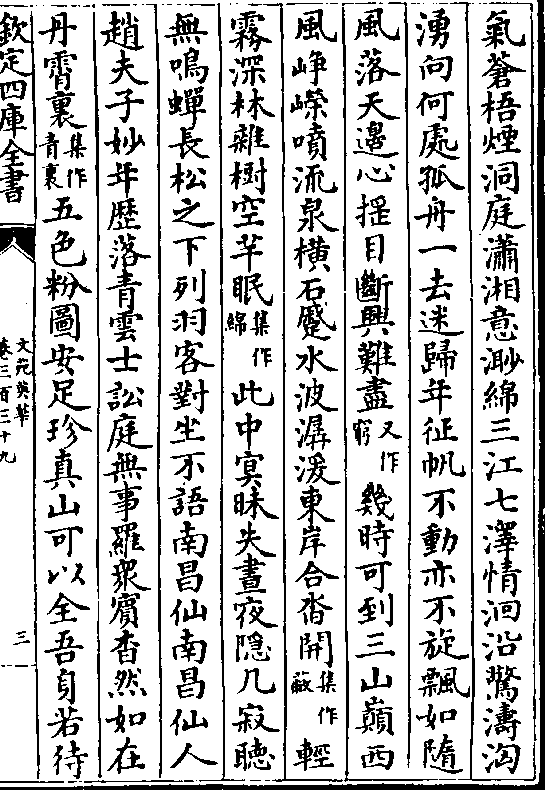 氣蒼梧煙洞庭瀟湘意渺綿三江七澤情洄沿驚濤洶
湧向何處孤舟一去迷歸年征帆不動亦不旋飄如隨
風落天邊心揺目斷興難盡又作窮幾時可到三山巔西
風崢嶸噴流泉橫石蹙水波潺湲東岸合沓開集作蔽輕
霧深林雜樹空芊眠集作綿此中冥昧失晝夜隱几寂聽
無鳴蟬長松之下列羽客對坐不語南昌仙南昌仙人
趙夫子妙年歷落青雲士訟庭無事羅衆賓杳然如在
丹霄裏集作青裏五色粉圖安足珍真山可以全吾身若待
欽定四庫全書
文苑英華
卷三百三十九
三